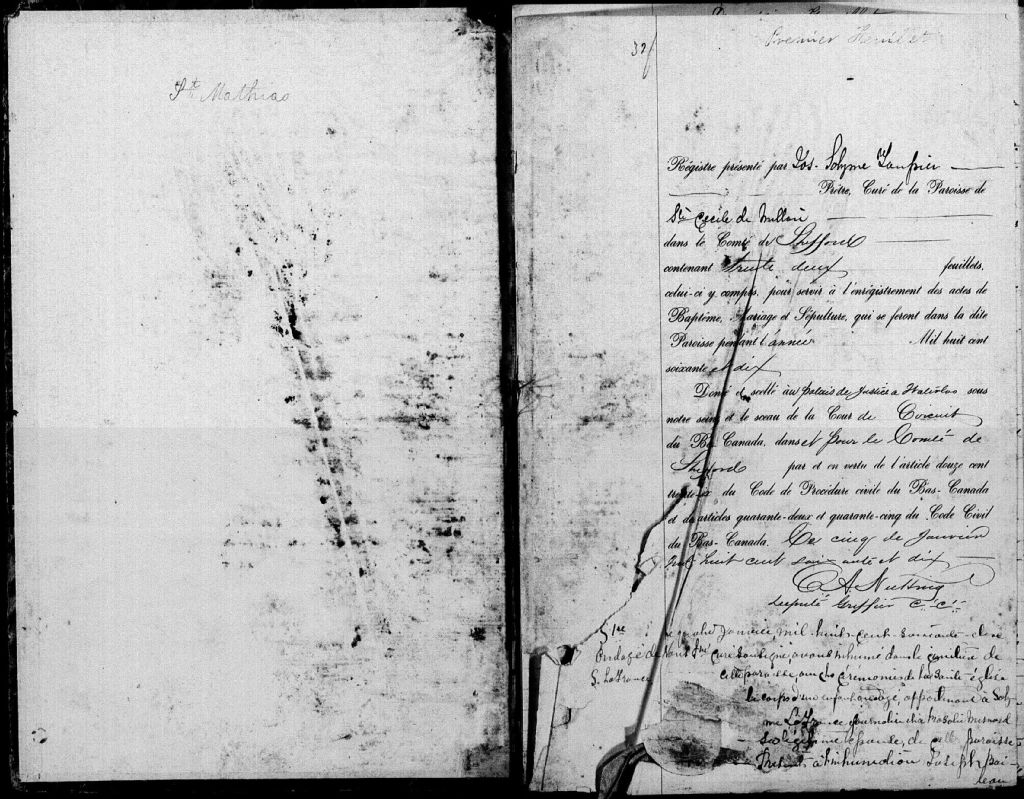 St Mathias
32
Premier Feuillet
Régistre présenté par Jos- Solyme Taupier
Prêtre, Curé de la Paroisse de
Ste Cecile de Milton
dans le Comté de Shefford
contenant Trente deux feuillets,
celui-ci y compris, pour servir à l'enrégistrement des actes de
Baptême, Mariage et Sépulture, qui se feront dans la dite
Paroisse pendant l'année Mil huit cent
soixante et dix
Donné et scellé au palais de Justice a Waterloo sous
notre seing et le sceau de la Cour de Circuit
du Bas Canada, dans et pour le Comté de
Shefford par et en vertu de l'article douze cent
du Code de Procédure civile du Bas-Canada
et des articles quarante-deux et quarante-cinq du Code Civil
du Bas-Canada. Ce cinq de Janvier
mil huit cent soixante et dix
C A. Nutting
député Greffier C. C.
S 1re
Janvier, mil-huit-cent-soixante-
Ondoyé de curé soussigné, avons inhumé dans le cimetière de
S. Lafrance
cette paroisse avec les cérémonies de la Sainte église
le corps d'un enfant ondoyé, appartenant à Soly
me Lafrance journalier & à Rosalie Mesnard
sa légitime épouse, de cette paroisse
Présents à l'inhumation Joseph